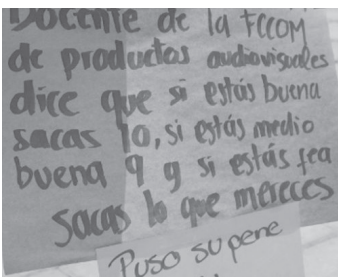 Docente de la FCCOM
de productos audiovisuales
dice que si estás buena
sacas 10, si estás medio
buena 9 y si estás fea
sacas lo que mereces
Puso su pene